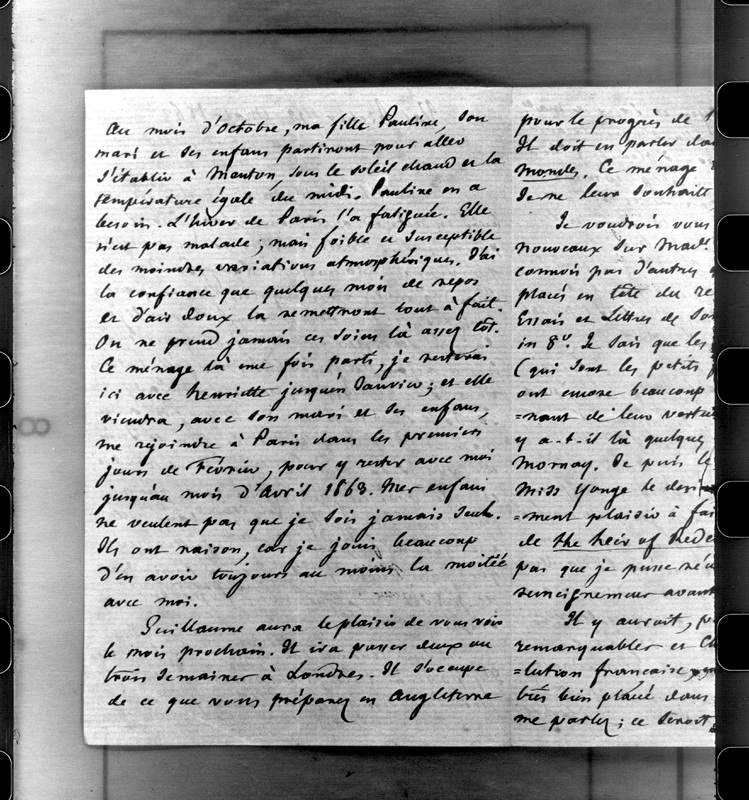 Au mois d'octobre, ma fille Pauline, son
mari et ses enfans partiront pour aller
s'établir à Menton sous le soleil chaud et la
température égale du midi. Pauline en a
besoin. L'hiver de Paris l'a fatiguée. Elle
n'est pas malade; mais foible et susceptible
des moindres variations atmosphériques. J'ai
la confiance que quelques mois de repos
et d'air doux la remettront tout à fait.
On ne prend jamais ces soins là assez tôt.
Ce ménage là une fois parti, je resterai
ici avec henriette jusqu'en Janvier; et elle
viendra, avec son mari et ses enfans,
me rejoindre à Paris dans les premiers
jours de Février, pour y rester avec moi
jusqu'au mois d'Avril 1863. Mes enfans
ne veulent pas que je sois jamais seul.
Ils ont raison, car je jouis beaucoup
d'en avoir toujours au moins la moitié
avec moi.
Guillaume aura le plaisir de vous voir
le mois prochain. Il ira passer deux ou
trois semaines à Londres. Il s'occupe
de ce que vous préparez en Angleterre
pour le progrès de
Il doit en parler
mondes. Ce ménage
Je ne leur souhaite
Je voudrois vous
nouveaux sur Mad.
connois pas d'autres
placés en tête du
Essais et Lettres de
in 8°. Je sais que les
(qui sont les petits
ont encore beaucoup
=nant de leur
y a-t-il là quelques
Mornay. De puis le
Miss Yonge le
=ment plaisir à
de the heir of
pas que je puisse
renseignemens avant
Il y auroit,
remarquables et
=lution française
très bien placé dans
me parlez; ce seroit
8